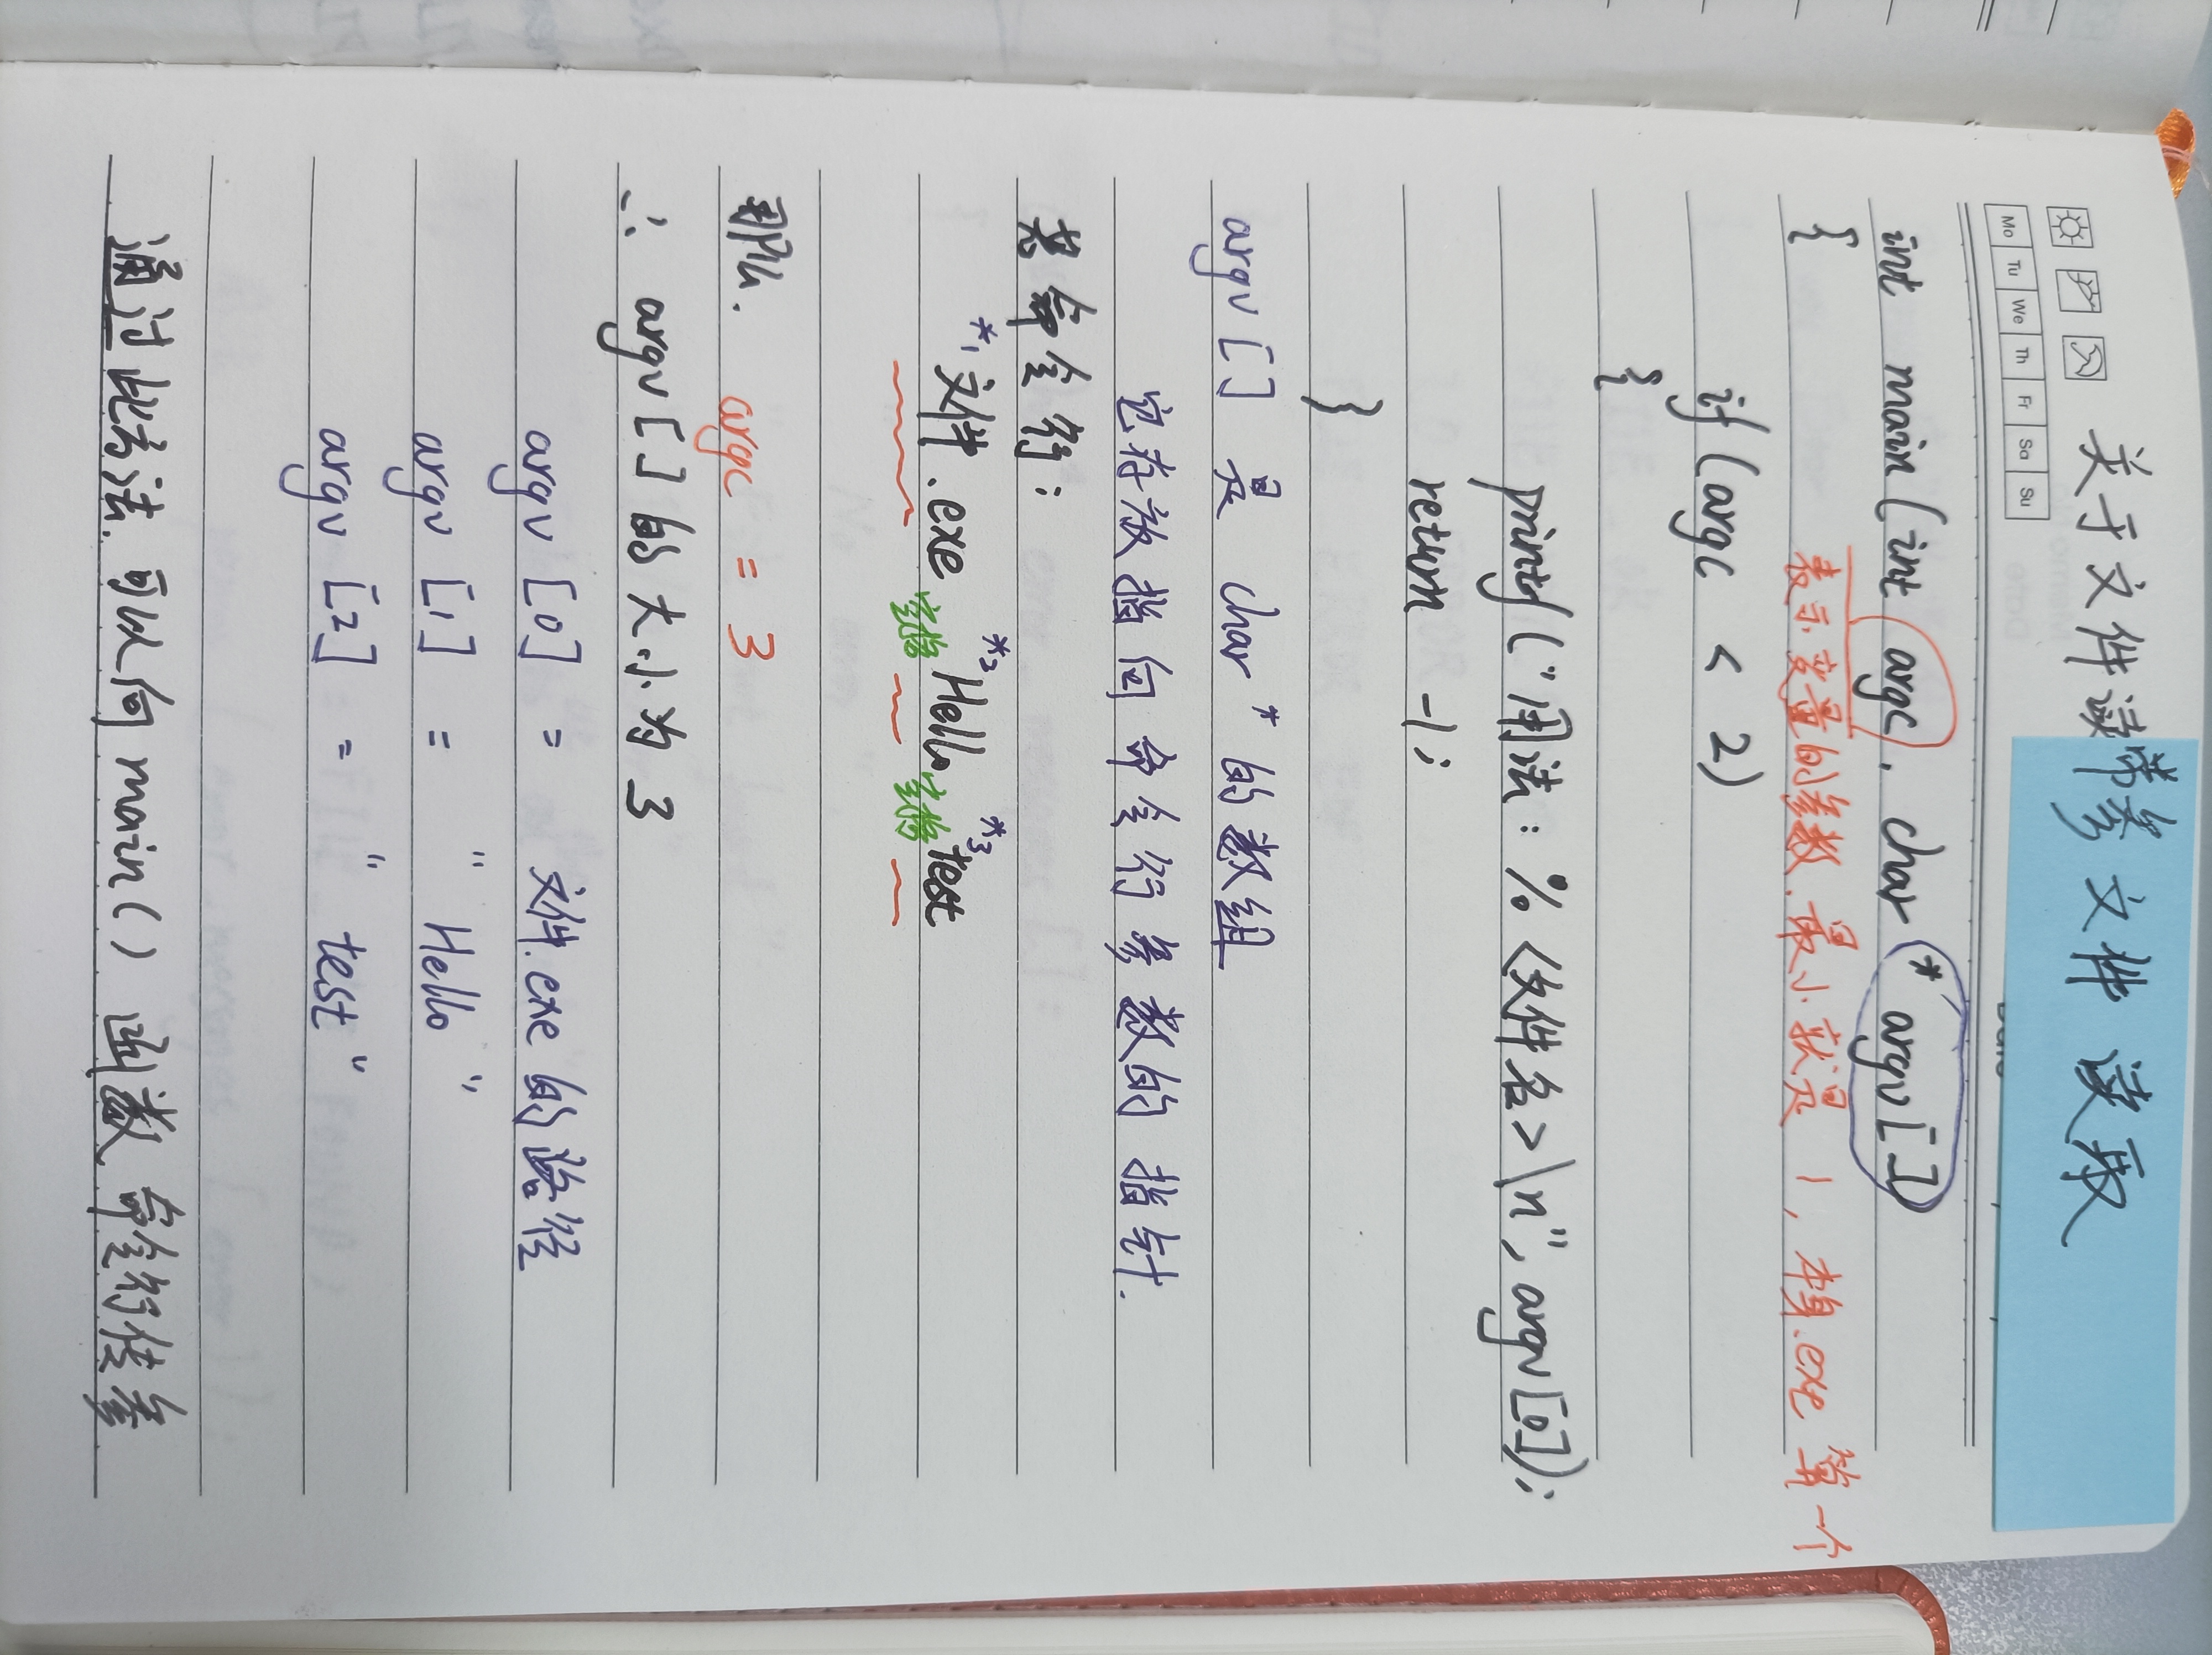 关于文件读带参文件 读取
Mo Tu We Th Fr Sa Su
int main(int argc, char * argv[])
{ 表示变量的参数.最小就是 1, 本身.exe 算一个
if (argc < 2)
{
printf("用法: % <文件名>\n", argv[0]);
return -1;
}
argv[] 是 char* 的数组
它存放指向命令行参数的指针.
若命令行:
*1 文件.exe 空格 *2 Hello 空格 *3 test
那么. argc = 3
∴ argv[] 的大小为 3
argv [0] = 文件.exe 的路径
argv [1] = " Hello "
argv [2] = " test "
通过此方法.可以向 main() 函数 命令行传参